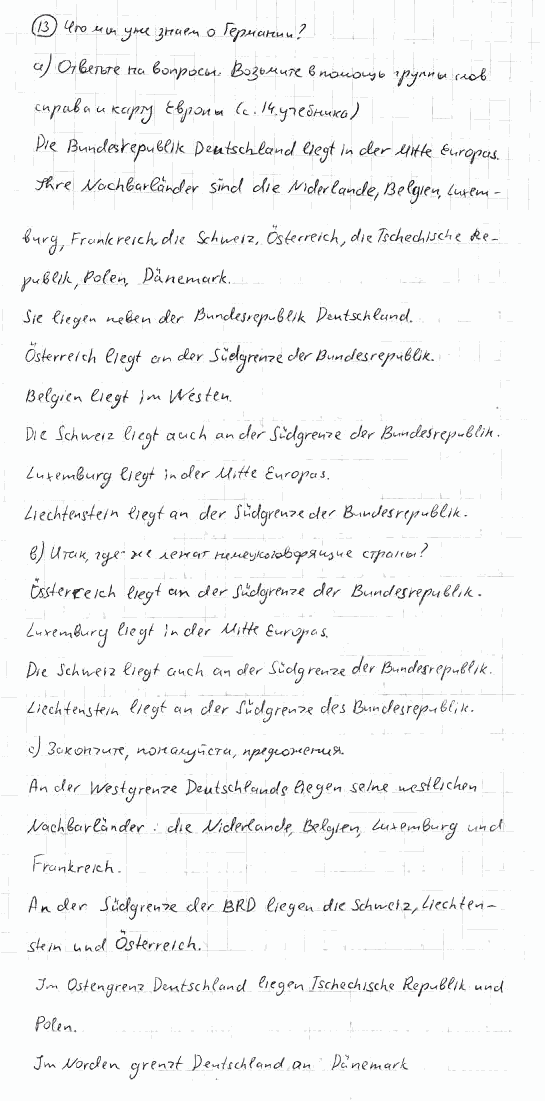 13 Что мы уже знаем о Германии?
а) Ответьте на вопросы. Возьмите в помощь группы слов
справа и карту Европы (с. 14 учебника)
Die Bundesrepublik Deutschland liegt in der Mitte Europas.
Ihre Nachbarländer sind die Niderlande, Belgien, Luxem-
burg, Frankreich, die Schweiz, Österreich, die Tschechische Re-
publik, Polen, Dänemark.
Sie liegen neben der Bundesrepublik Deutschland.
Österreich liegt an der Südgrenze der Bundesrepublik.
Belgien liegt im Westen.
Die Schweiz liegt auch an der Südgrenze der Bundesrepublik.
Luxemburg liegt in der Mitte Europas.
Liechtenstein liegt an der Südgrenze der Bundesrepublik.
b) Итак, где-же лежат немецкоговорящие страны?
Össterreich liegt an der Südgrenze der Bundesrepublik.
Luxemburg liegt in der Mitte Europas.
Die Schweiz liegt auch an der Südgrenze der Bundesrepublik.
Liechtenstein liegt an der Südgrenze des Bundesrepublik.
c) Закончите, пожалуйста, предложения.
An der Westgrenze Deutschlands liegen seine westlichen
Nachbarländer: die Niderlande, Belgien, Luxemburg und
Frankreich.
An der Südgrenze der BRD liegen die Schweiz, Liechten-
stein und Österreich.
Im Ostengrenz Deutschland liegen Tschechische Republik und
Polen.
Im Norden grenzt Deutschland an Dänemark